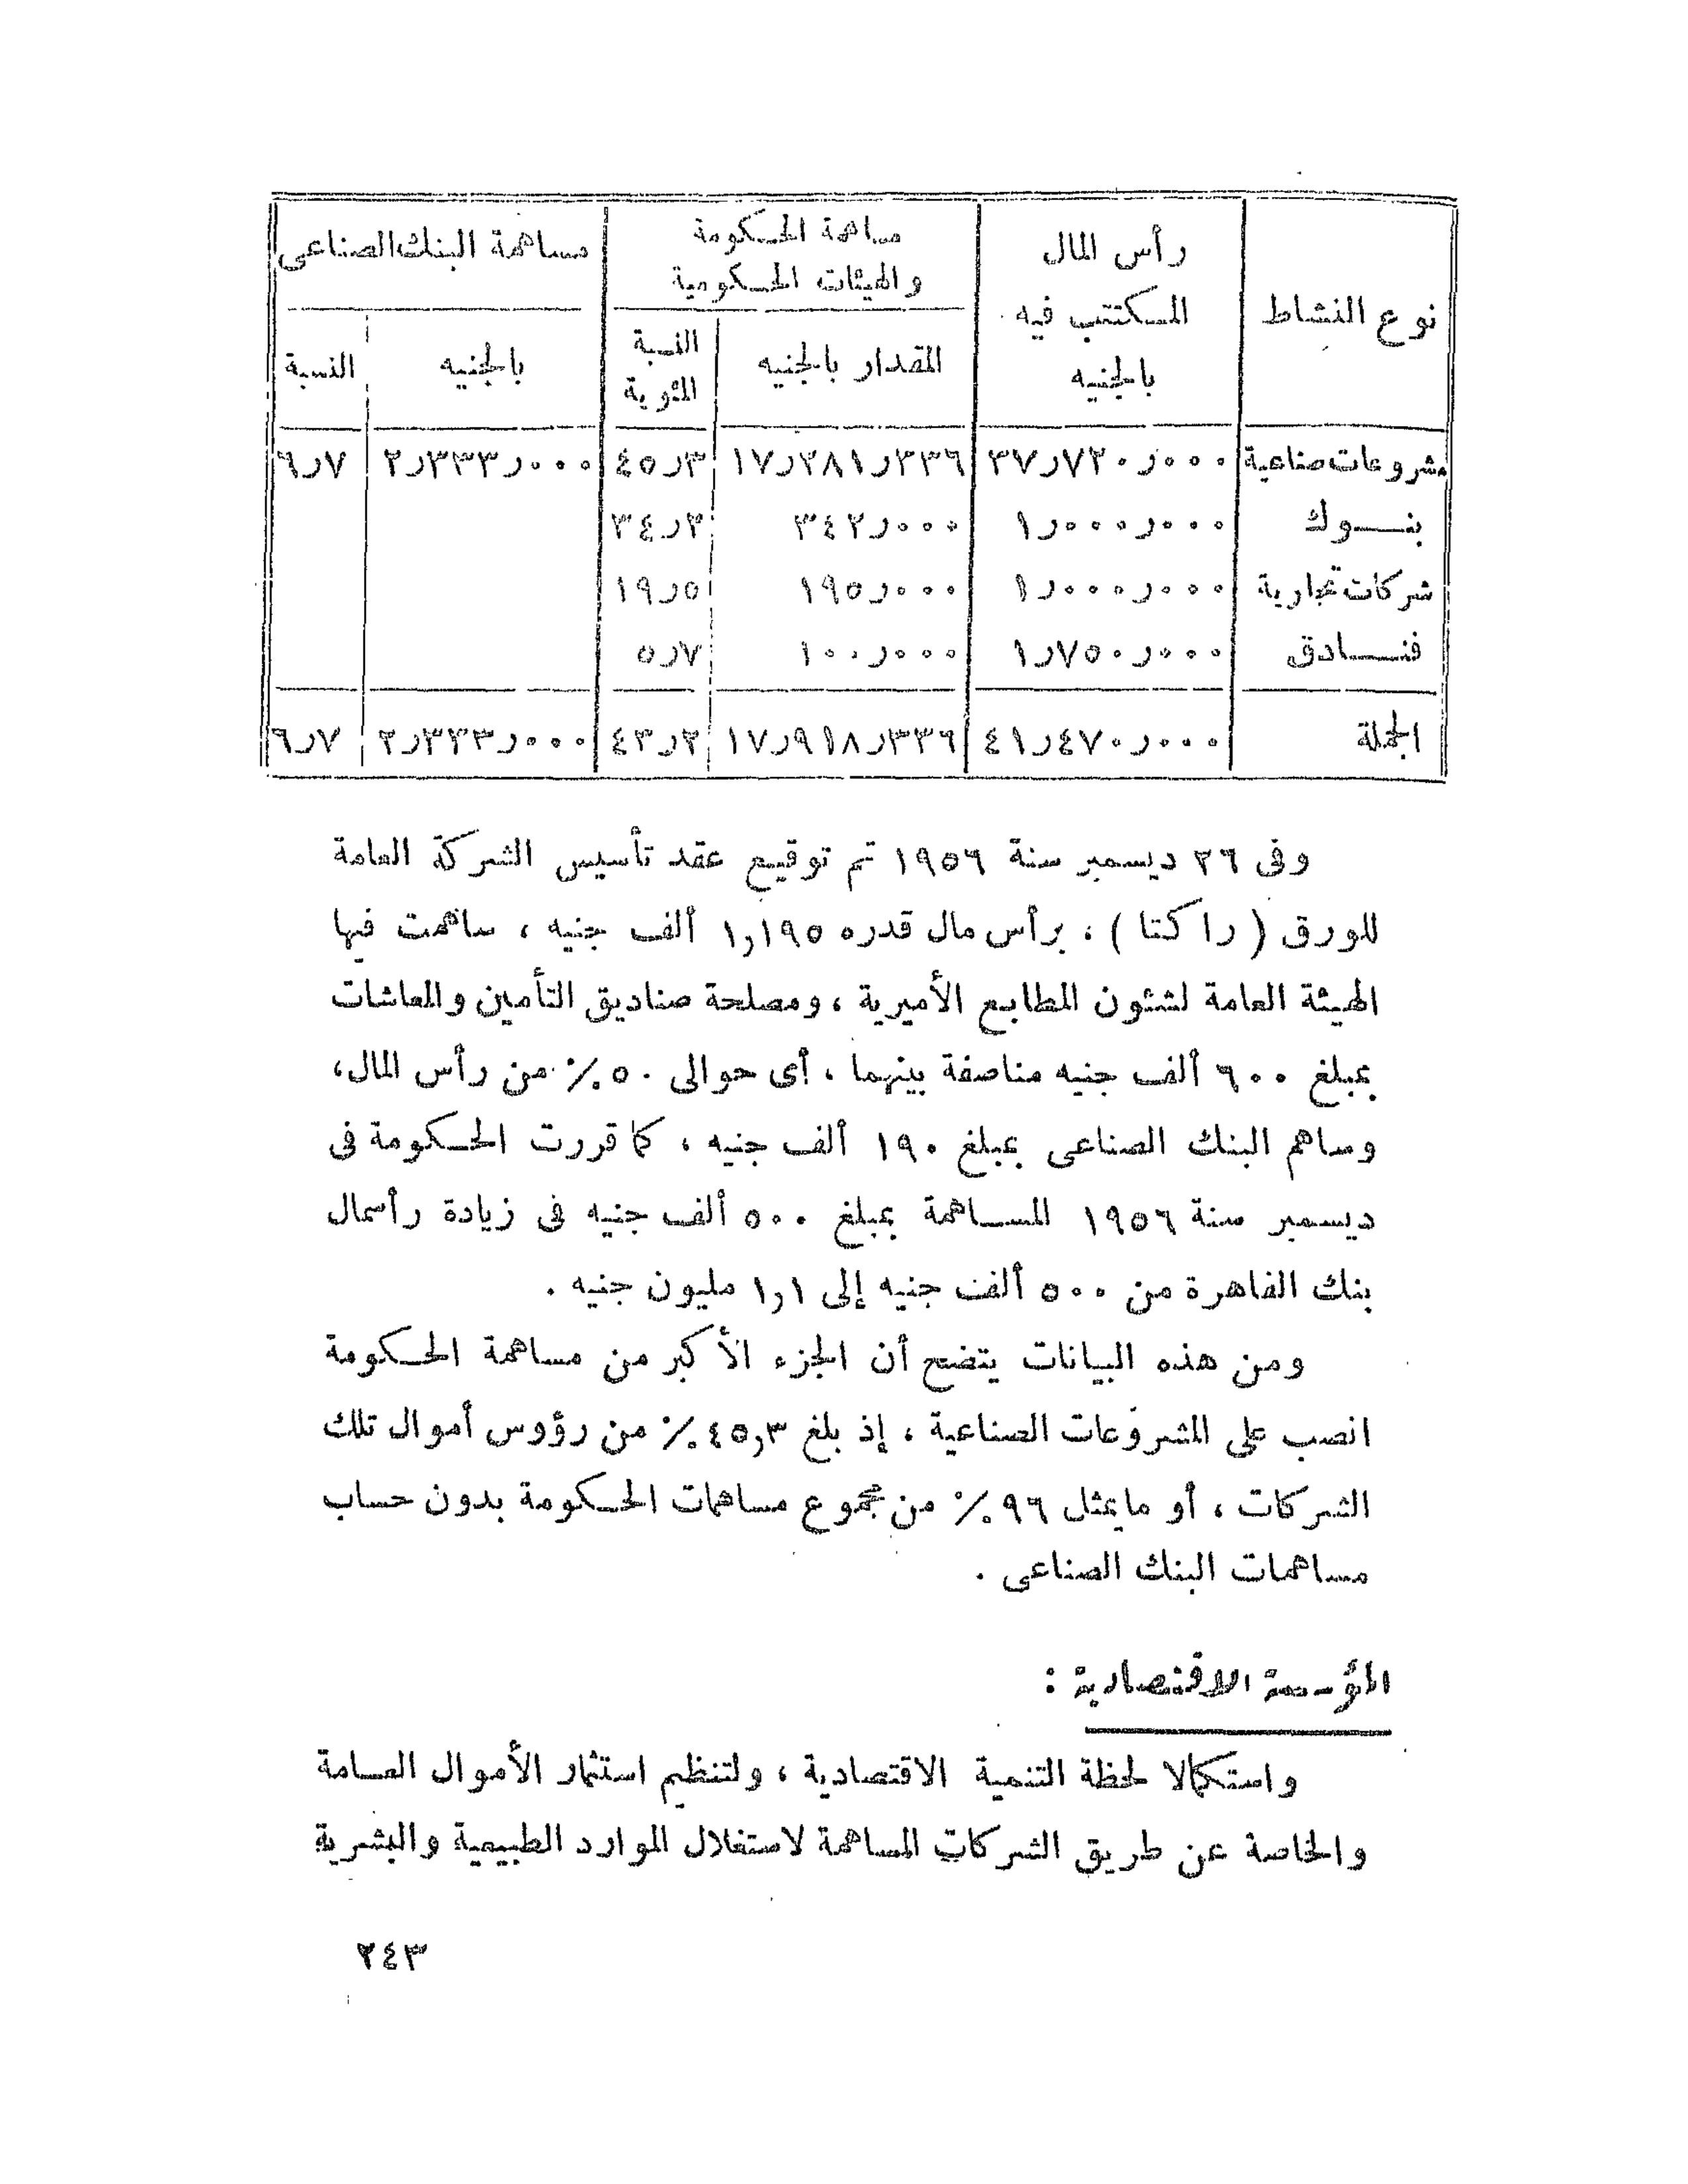 نوع النشاط
رأس المال
المكتتب فيه
بالجنيه
مساهمة الحكومة
والهيئات الحكومية
مساهمة البنك الصناعى
المقدار بالجنيه
النسبة
المئوية
بالجنيه
النسبة
مشروعات صناعية ٣٧٫٧٢٠٫٠٠٠ ١٧٫٢٨١٫٣٣٦ ٤٥٫٣ ٢٫٣٣٣٫٠٠٠ ٦٫٧
بنوك ١٫٠٠٠٫٠٠٠ ٣٤٢٫٠٠٠ ٣٤٫٢
شركات تجارية ١٫٠٠٠٫٠٠٠ ١٩٥٫٠٠٠ ١٩٫٥
فنادق ١٫٧٥٠٫٠٠٠ ١٠٠٫٠٠٠ ٥٫٧
الجملة ٤١٫٤٧٠٫٠٠٠ ١٧٫٩١٨٫٣٣٦ ٤٣٫٢ ٢٫٣٣٣٫٠٠٠ ٦٫٧
وفى ٢٦ ديسمبر سنة ١٩٥٦ تم توقيع عقد تأسيس الشركة العامة
للورق ( راكتا ) ، برأس مال قدره ١٫١٩٥ ألف جنيه ، ساهمت فيها
الهيئة العامة لشئون المطابع الأميرية ، ومصلحة صناديق التأمين والمعاشات
بمبلغ ٦٠٠ ألف جنيه مناصفة بينهما ، أى حوالى ٥٠ ٪ من رأس المال،
وساهم البنك الصناعى بمبلغ ١٩٠ ألف جنيه ، كما قررت الحكومة فى
ديسمبر سنة ١٩٥٦ المساهمة بمبلغ ٥٠٠ ألف جنيه فى زيادة رأسمال
بنك القاهرة من ٥٠٠ ألف جنيه إلى ١٫١ مليون جنيه .
ومن هذه البيانات يتضح أن الجزء الأكبر من مساهمة الحكومة
انصب على المشروعات الصناعية ، إذ بلغ ٤٥٫٣ ٪ من رؤوس أموال تلك
الشركات ، أو ما يمثل ٩٦ ٪ من مجموع مساهمات الحكومة بدون حساب
مساهمات البنك الصناعى .
المؤسسة الاقتصادية :
واستكمالا لخطة التنمية الاقتصادية ، ولتنظيم استثمار الأموال العامة
والخاصة عن طريق الشركات المساهمة لاستغلال الموارد الطبيعية والبشرية
٢٤٣